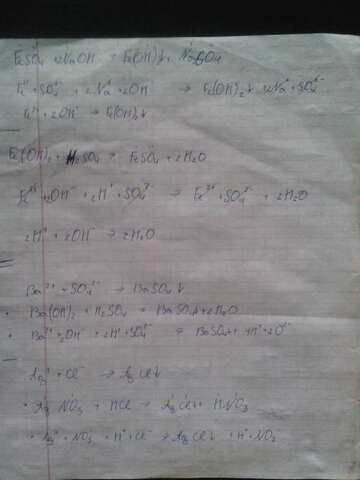 FeSO₄ + 2NaOH = Fe(OH)₂↓ + Na₂SO₄
Fe²⁺ + SO₄²⁻ + 2Na⁺ + 2OH⁻ → Fe(OH)₂↓ + 2Na⁺ + SO₄²⁻
Fe²⁺ + 2OH⁻ → Fe(OH)₂↓
Fe(OH)₂ + H₂SO₄ = FeSO₄ + 2H₂O
Fe²⁺ + 2OH⁻ + 2H⁺ + SO₄²⁻ → Fe²⁺ + SO₄²⁻ + 2H₂O
2H⁺ + 2OH⁻ → 2H₂O
Ba²⁺ + SO₄²⁻ → BaSO₄↓
• Ba(OH)₂ + H₂SO₄ = BaSO₄↓ + 2H₂O
• Ba²⁺ + 2OH⁻ + 2H⁺ + SO₄²⁻ = BaSO₄↓ + 4H⁺ + 2O²⁻
Ag⁺ + Cl⁻ → AgCl↓
• AgNO₃ + HCl → AgCl↓ + HNO₃
• Ag⁺ + NO₃⁻ + H⁺ + Cl⁻ → AgCl↓ + H⁺ + NO₃⁻